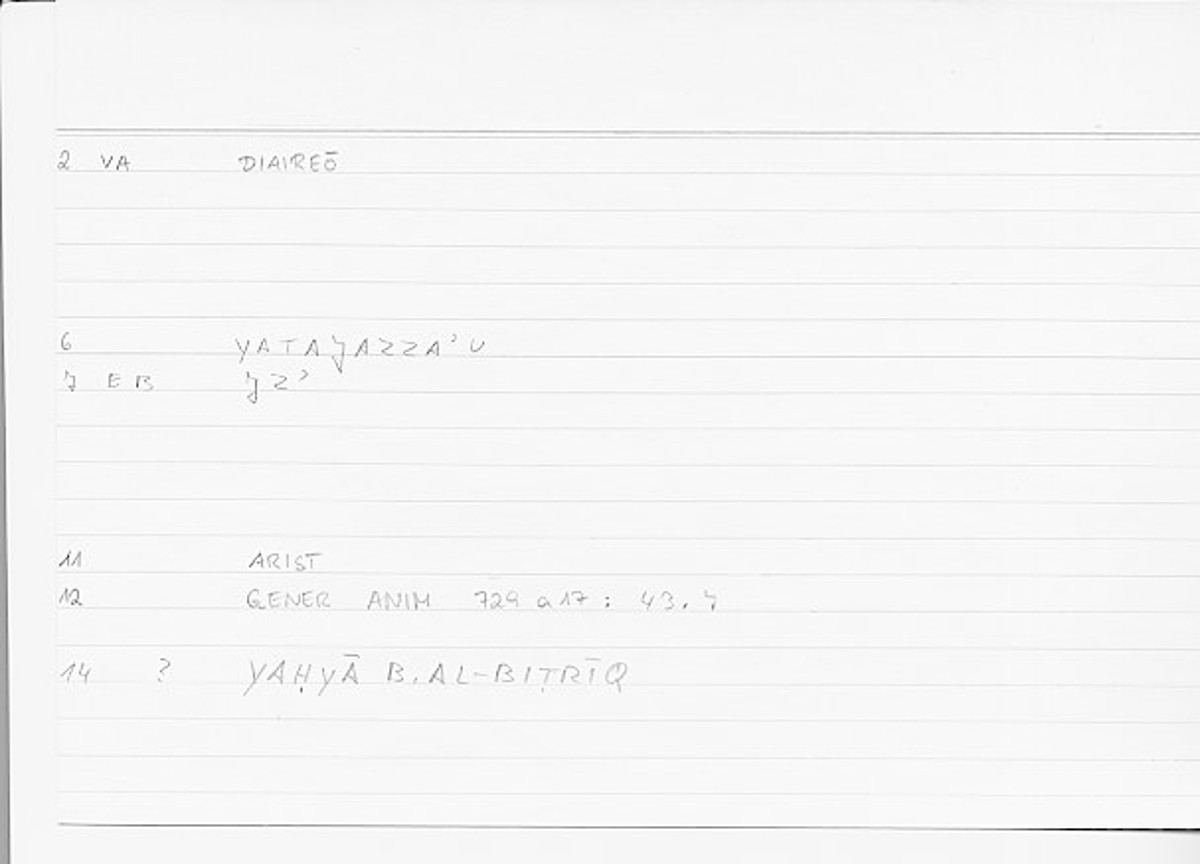 2 VA DIAIREŌ
6 YATAǦAZZAʾU
7 EB ǦZʾ
11 ARIST
12 GENER ANIM 729 a17 : 43.7
14 ? YAḤYĀ B. AL-BIṬRĪQ